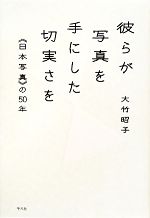 彼らが
写真を
手にした
切実さを
《日本写真》の50年
大竹昭子
平凡社